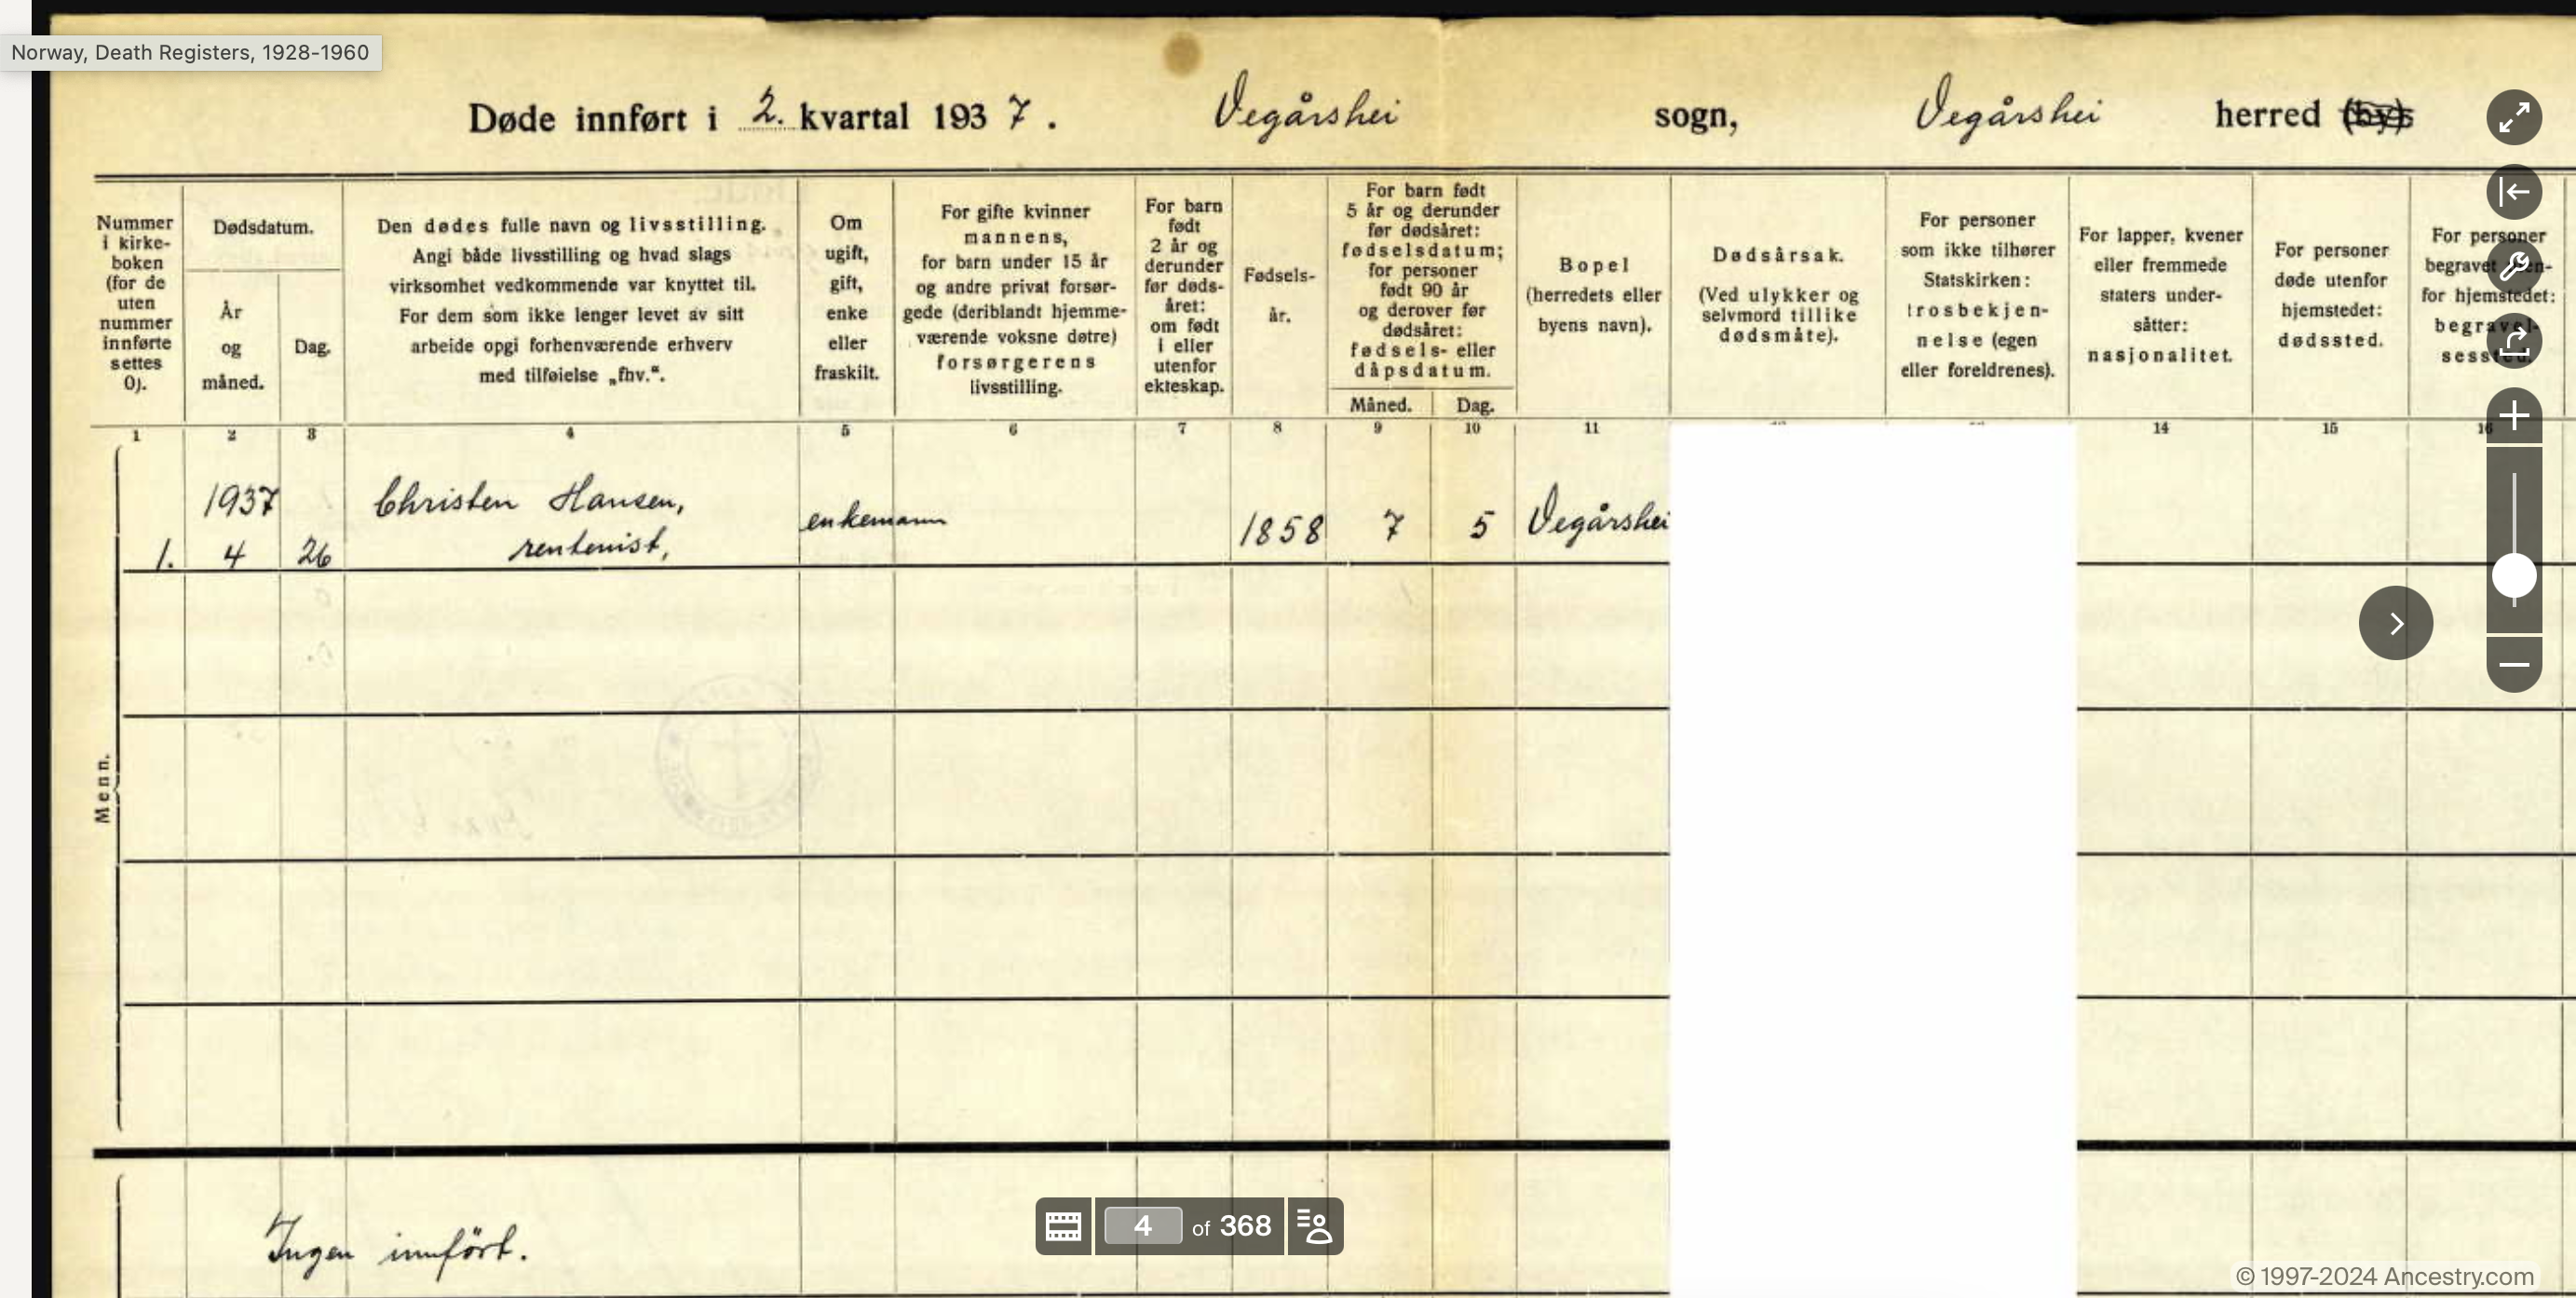 Norway, Death Registers, 1928-1960
Døde innført i 2. kvartal 1937. Vegårshei sogn, Vegårshei herred (by)s
Nummer
i kirke-
boken
(for de
uten
nummer
innførte
settes
0).
Dødsdatum.
År
og
måned.
Dag.
Den dødes fulle navn og livsstilling.
Angi både livsstilling og hvad slags
virksomhet vedkommende var knyttet til.
For dem som ikke lenger levet av sitt
arbeide opgi forhenværende erhverv
med tilføielse „fhv.“.
Om
ugift,
gift,
enke
eller
fraskilt.
For gifte kvinner
mannens,
for barn under 15 år
og andre privat forsør-
gede (deriblandt hjemme-
værende voksne døtre)
forsørgerens
livsstilling.
For barn
født
2 år og
derunder
før døds-
året:
om født
i eller
utenfor
ekteskap.
Fødsels-
år.
For barn født
5 år og derunder
før dødsåret:
fødselsdatum;
for personer
født 90 år
og derover før
dødsåret:
fødsels- eller
dåpsdatum.
Måned. Dag.
Bopel
(herredets eller
byens navn).
Dødsårsak.
(Ved ulykker og
selvmord tillike
dødsmåte).
For personer
som ikke tilhører
Statskirken:
trosbekjen-
nelse (egen
eller foreldrenes).
For lapper, kvener
eller fremmede
staters under-
såtter:
nasjonalitet.
For personer
døde utenfor
hjemstedet:
dødssted.
For personer
begravet
for hjemstedet:
1 2 3 4 5 6 7 8 9 10 11 14 15 16
1937 Christen Hansen,
1. 4 26 rentenist, enkemann 1858 7 5 Vegårshei
Menn.
Ingen innført.
4 of 368
© 1997-2024 Ancestry.com